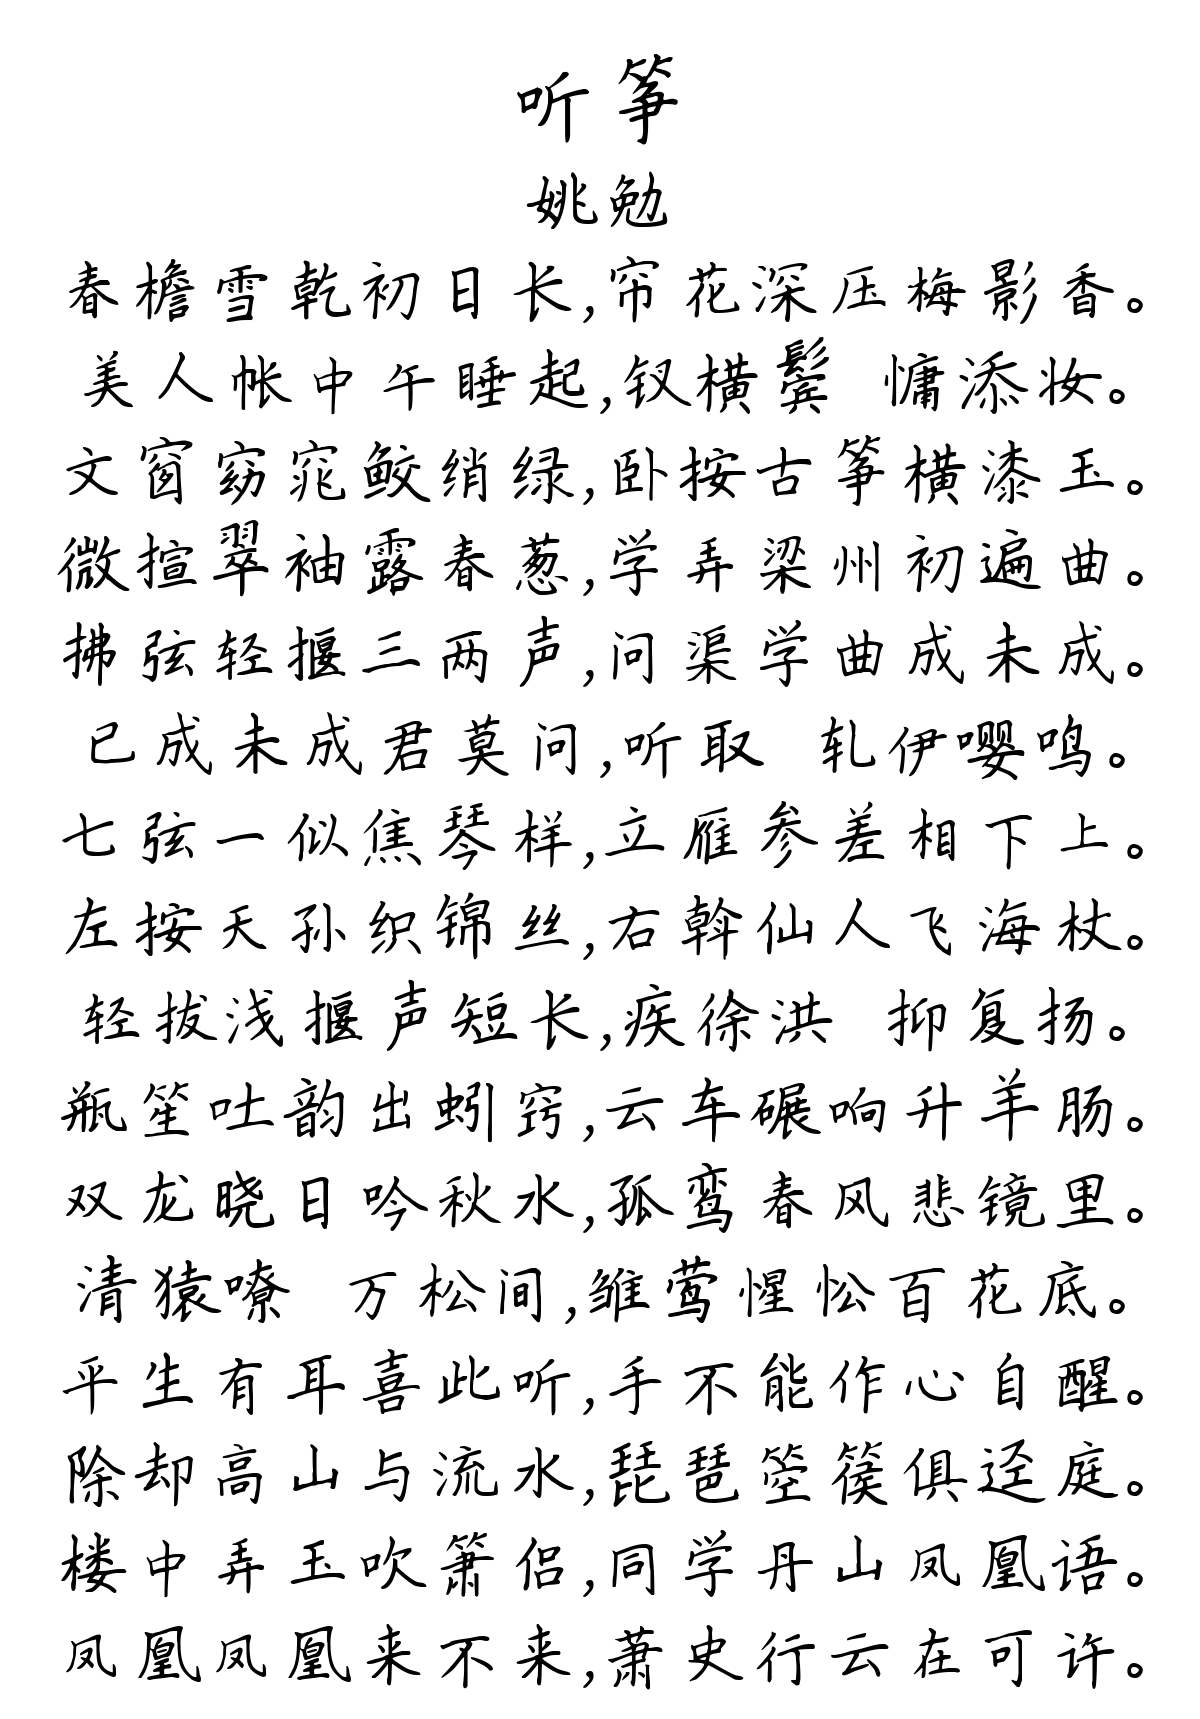 听筝
姚勉
春檐雪乾初日长,帘花深压梅影香。
美人帐中午睡起,钗横鬓 慵添妆。
文窗窈窕鲛绡绿,卧按古筝横漆玉。
微揎翠袖露春葱,学弄梁州初遍曲。
拂弦轻揠三两声,问渠学曲成未成。
已成未成君莫问,听取 轧伊嘤鸣。
七弦一似焦琴样,立雁参差相下上。
左按天孙织锦丝,右斡仙人飞海杖。
轻拔浅揠声短长,疾徐洪 抑复扬。
瓶笙吐韵出蚓窍,云车碾响升羊肠。
双龙晓日吟秋水,孤鸾春风悲镜里。
清猿嘹 万松间,雏莺惺忪百花底。
平生有耳喜此听,手不能作心自醒。
除却高山与流水,琵琶箜篌俱迳庭。
楼中弄玉吹箫侣,同学丹山凤凰语。
凤凰凤凰来不来,萧史行云在可许。